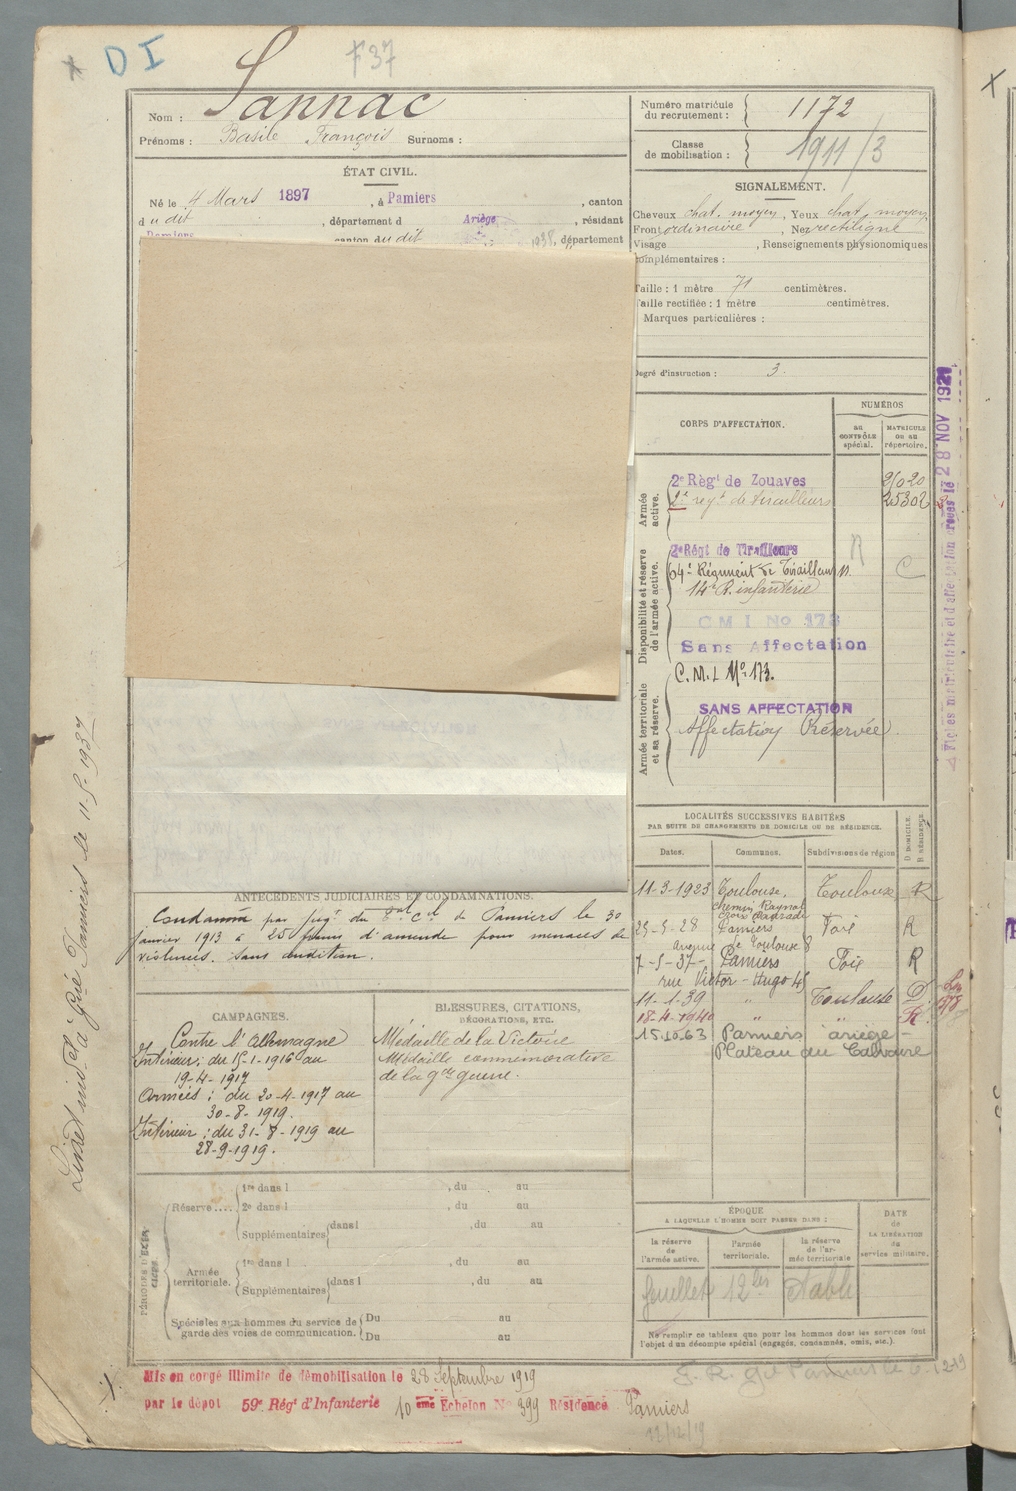 D I
F 37
Nom : Sannac
Prénoms : Basile François Surnoms :
Numéro matricule
du recrutement : 1172
Classe
de mobilisation : 1911/3
ÉTAT CIVIL.
Né le 4 Mars 1897, à Pamiers, canton
du dit, département d Ariège, résidant
Pamiers, canton du dit 1938, département
SIGNALEMENT.
Cheveux chat. moyen, Yeux chat. moyen
Front ordinaire, Nez rectiligne
Visage , Renseignements physionomiques
complémentaires :
Taille : 1 mètre 71 centimètres.
Taille rectifiée : 1 mètre centimètres.
Marques particulières :
Degré d'instruction : 3.
CORPS D'AFFECTATION.
NUMÉROS
au
CONTRÔLE
spécial.
MATRICULE
ou au
répertoire.
Armée
active.
2e Régt de Zouaves
2e regt de tirailleurs 25302
Disponibilité et réserve
de l'armée active.
2e Régt de Tirailleurs R
64e Régiment de Tirailleurs N. C
14e R. infanterie
C M I No 173
Sans Affectation
C.M.I No 173.
Armée territoriale
et sa réserve.
SANS AFFECTATION
Affectation Réservée.
28 NOV 1921
LOCALITÉS SUCCESSIVES HABITÉES
PAR SUITE DE CHANGEMENTS DE DOMICILE OU DE RÉSIDENCE.
Dates. Communes. Subdivisions de région D DOMICILE. R RÉSIDENCE.
11-3-1923 Toulouse. Toulouse R
chemin Raynal
croix Daurade
25-5-28 Pamiers Foix R
avenue de Toulouse 8
7-5-37- Pamiers Foix R
rue Victor-Hugo 45
11-1-39 " Toulouse D
18-4-1940 " " R.
15.10.63 Pamiers ariège
Plateau du Calvaire
ANTÉCÉDENTS JUDICIAIRES ET CONDAMNATIONS.
Condamné par jugt du Bal Cel de Pamiers le 30
janvier 1913 à 25 francs d'amende pour menaces de
violences. sans condition.
CAMPAGNES.
Contre l'Allemagne
Intérieur : du 15-1-1916 au
19-4-1917
Armées : du 20-4-1917 au
30-8-1919.
Intérieur : du 31-8-1919 au
28-9-1919.
BLESSURES, CITATIONS,
DÉCORATIONS, ETC.
Médaille de la Victoire
Médaille commémorative
de la gde guerre.
PÉRIODES D'EXERCICES.
Réserve....
1re dans l , du au
2e dans l , du au
Supplémentaires dans l , du au
Armée
territoriale.
1re dans l , du au
Supplémentaires dans l , du au
Spéciales aux hommes du service de
garde des voies de communication.
Du au
Du au
ÉPOQUE
A LAQUELLE L'HOMME DOIT PASSER DANS :
la réserve
de
l'armée active.
l'armée
territoriale.
la réserve
de l'ar-
mée territoriale
DATE
de
LA LIBÉRATION
du
service militaire.
feuillet 12 bis établi
Ne remplir ce tableau que pour les hommes dont les services font
l'objet d'un décompte spécial (engagés, condamnés, omis, etc.).
Mis en congé illimité de démobilisation le 28 Septembre 1919
par le dépôt 59e Régt d'Infanterie 10 eme Echelon No 399 Résidence Pamiers
12/12/19